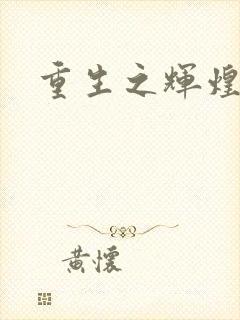 重生之輝煌
黃懷